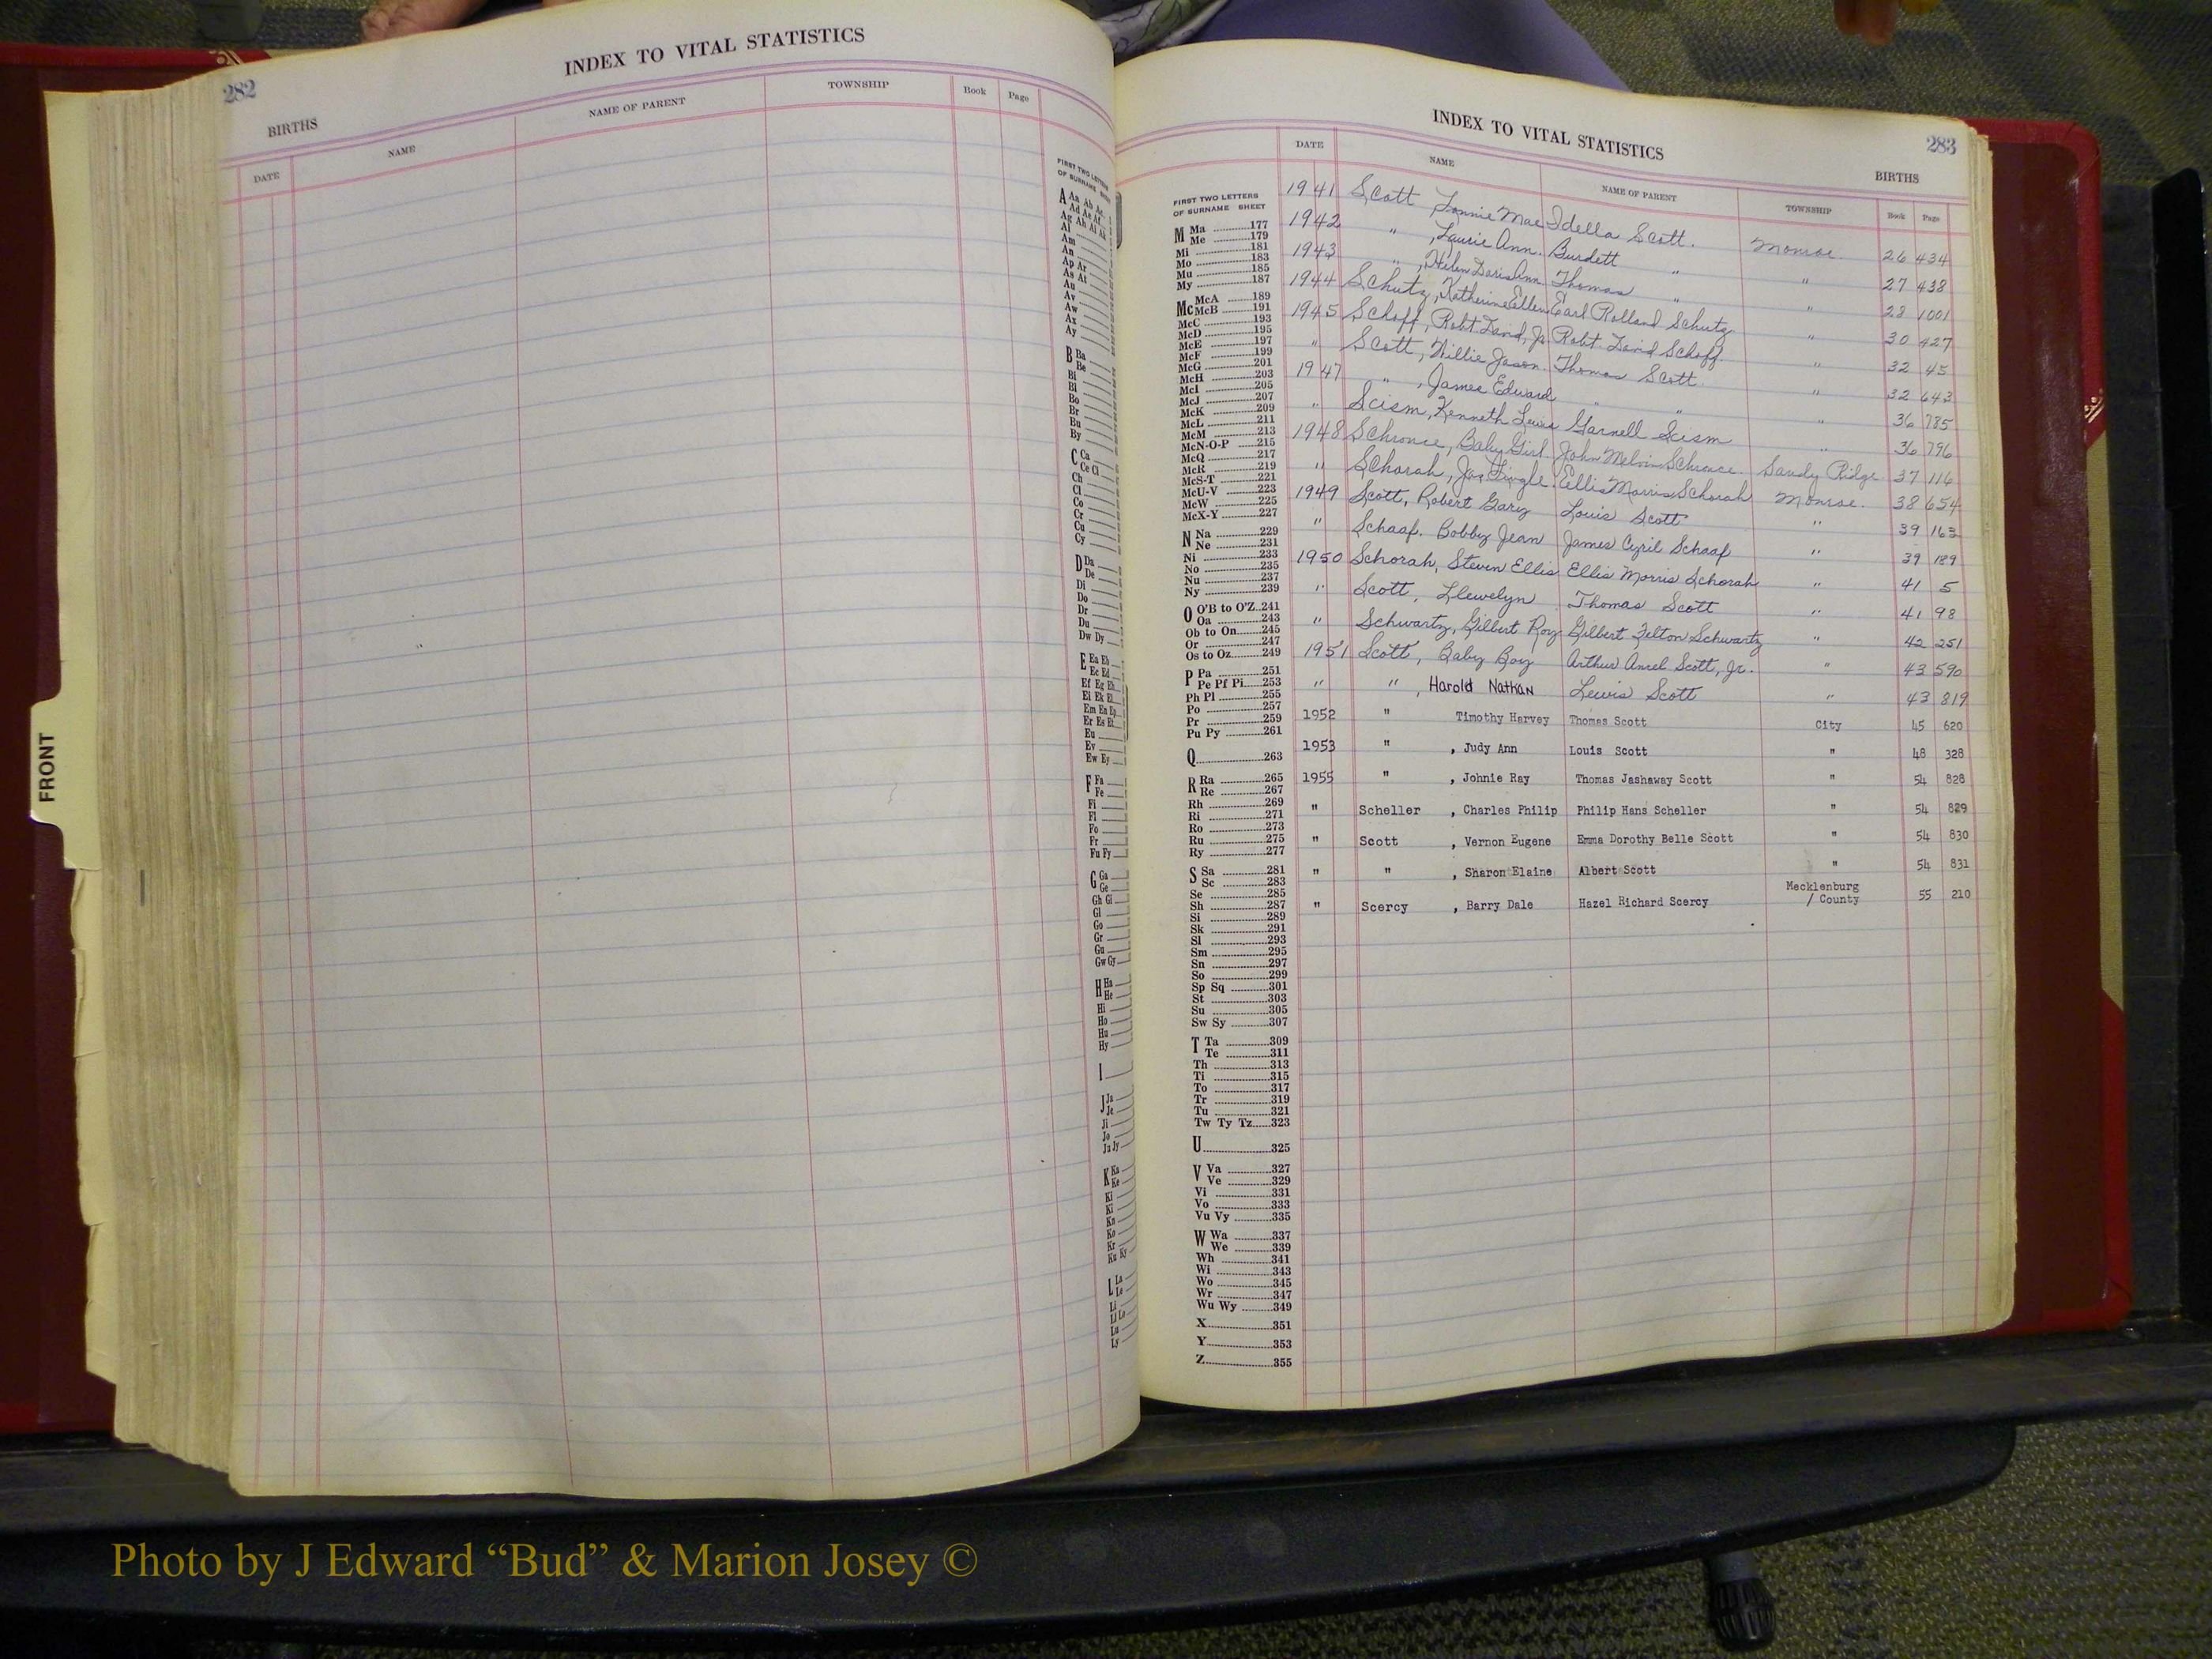 282
INDEX TO VITAL STATISTICS
BIRTHS
DATE NAME NAME OF PARENT TOWNSHIP Book Page
FIRST TWO LETTERS
OF SURNAME
A Aa Ab Ac
Ad Ae Af
Ag Ah Ai Ak
Al
Am
An
Ap Ar
As At
Au
Av
Aw
Ax
Ay
B Ba
Be
Bi
Bl
Bo
Br
Bu
By
C Ca
Ce Ci
Ch
Cl
Co
Cr
Cu
Cy
D Da
De
Di
Do
Dr
Du
Dw Dy
E Ea Eb
Ec Ed
Ef Eg Eh
Ei Ek El
Em En Ep
Er Es Et
Eu
Ev
Ew Ey
F Fa
Fe
Fi
Fl
Fo
Fr
Fu Fy
G Ga
Ge
Gh Gi
Gl
Go
Gr
Gu
Gw Gy
H Ha
He
Hi
Ho
Hu
Hy
I
J Ja
Je
Ji
Jo
Ju Jy
K Ka
Ke
Ki
Kl
Kn
Ko
Kr
Ku Ky
L La
Le
Li
Ll Lo
Lu
Ly
FRONT
INDEX TO VITAL STATISTICS
283
BIRTHS
DATE NAME NAME OF PARENT TOWNSHIP Book Page
FIRST TWO LETTERS
OF SURNAME SHEET
M Ma 177
Me 179
Mi 181
Mo 183
Mu 185
My 187
Mc McA 189
McB 191
McC 193
McD 195
McE 197
McF 199
McG 201
McH 203
McI 205
McJ 207
McK 209
McL 211
McM 213
McN-O-P 215
McQ 217
McR 219
McS-T 221
McU-V 223
McW 225
McX-Y 227
N Na 229
Ne 231
Ni 233
No 235
Nu 237
Ny 239
O O'B to O'Z 241
Oa 243
Ob to On 245
Or 247
Os to Oz 249
P Pa 251
Pe Pf Pi 253
Ph Pl 255
Po 257
Pr 259
Pu Py 261
Q 263
R Ra 265
Re 267
Rh 269
Ri 271
Ro 273
Ru 275
Ry 277
S Sa 281
Sc 283
Se 285
Sh 287
Si 289
Sk 291
Sl 293
Sm 295
Sn 297
So 299
Sp Sq 301
St 303
Su 305
Sw Sy 307
T Ta 309
Te 311
Th 313
Ti 315
To 317
Tr 319
Tu 321
Tw Ty Tz 323
U 325
V Va 327
Ve 329
Vi 331
Vo 333
Vu Vy 335
W Wa 337
We 339
Wh 341
Wi 343
Wo 345
Wr 347
Wu Wy 349
X 351
Y 353
Z 355
1941 Scott Mae Idella Scott. Monroe. 26 434
1942 " , Laurie Ann. Burdett " " 27 438
1943 " , Helen Doris Ann. Thomas " " 28 1001
1944 Schutz, Katherine Ellen Earl Rolland Schutz " 30 427
1945 Schoff, Robt. David, Jr. Robt. David Schoff " 32 45
" Scott, Willie Jason. Thomas Scott. " 32 643
1947 " , James Edward " " " 36 785
" Scism, Kenneth Lewis Garnell Scism " 36 796
1948 Schronce, Baby Girl. John Melvin Schronce. Sandy Ridge 37 116
" Schorah, Jas. Ellis Morris Schorah Monroe. 38 654
1949 Scott, Robert Gary Louis Scott " 39 163
" Schaaf. Bobby Jean James Cyril Schaaf " 39 189
1950 Schorah, Steven Ellis Ellis Morris Schorah " 41 5
" Scott, Llewelyn Thomas Scott " 41 98
" Schwartz, Gilbert Roy Gilbert Felton Schwartz " 42 251
1951 Scott, Baby Boy Arthur Ansel Scott, Jr. " 43 590
" " , Harold Nathan Lewis Scott " 43 819
1952 " Timothy Harvey Thomas Scott City 45 620
1953 " , Judy Ann Louis Scott " 48 328
1955 " , Johnie Ray Thomas Jashaway Scott " 54 828
" Scheller , Charles Philip Philip Hans Scheller " 54 829
" Scott , Vernon Eugene Emma Dorothy Belle Scott " 54 830
" " , Sharon Elaine Albert Scott " 54 831
" Scercy , Barry Dale Hazel Richard Scercy Mecklenburg / County 55 210
Photo by J Edward “Bud” & Marion Josey ©